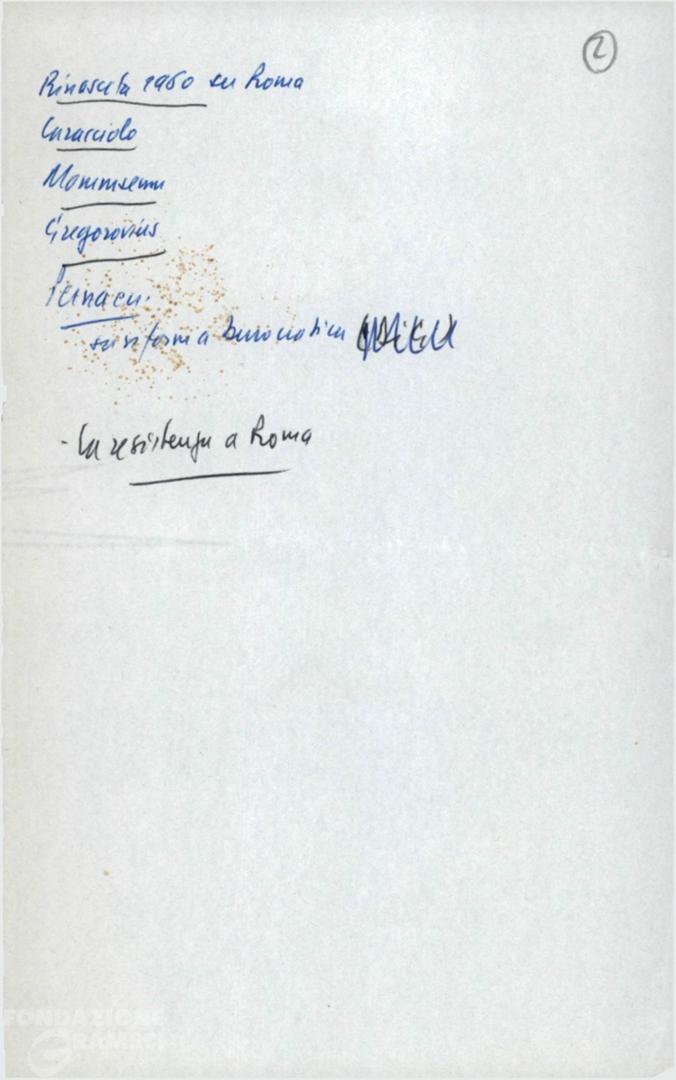 2
Rinascita 1960 su Roma
Caracciolo
Mommsenn
Gregorovius
su riforma burocratica
- La resistenza a Roma
FONDAZIONE
GRAMSCI